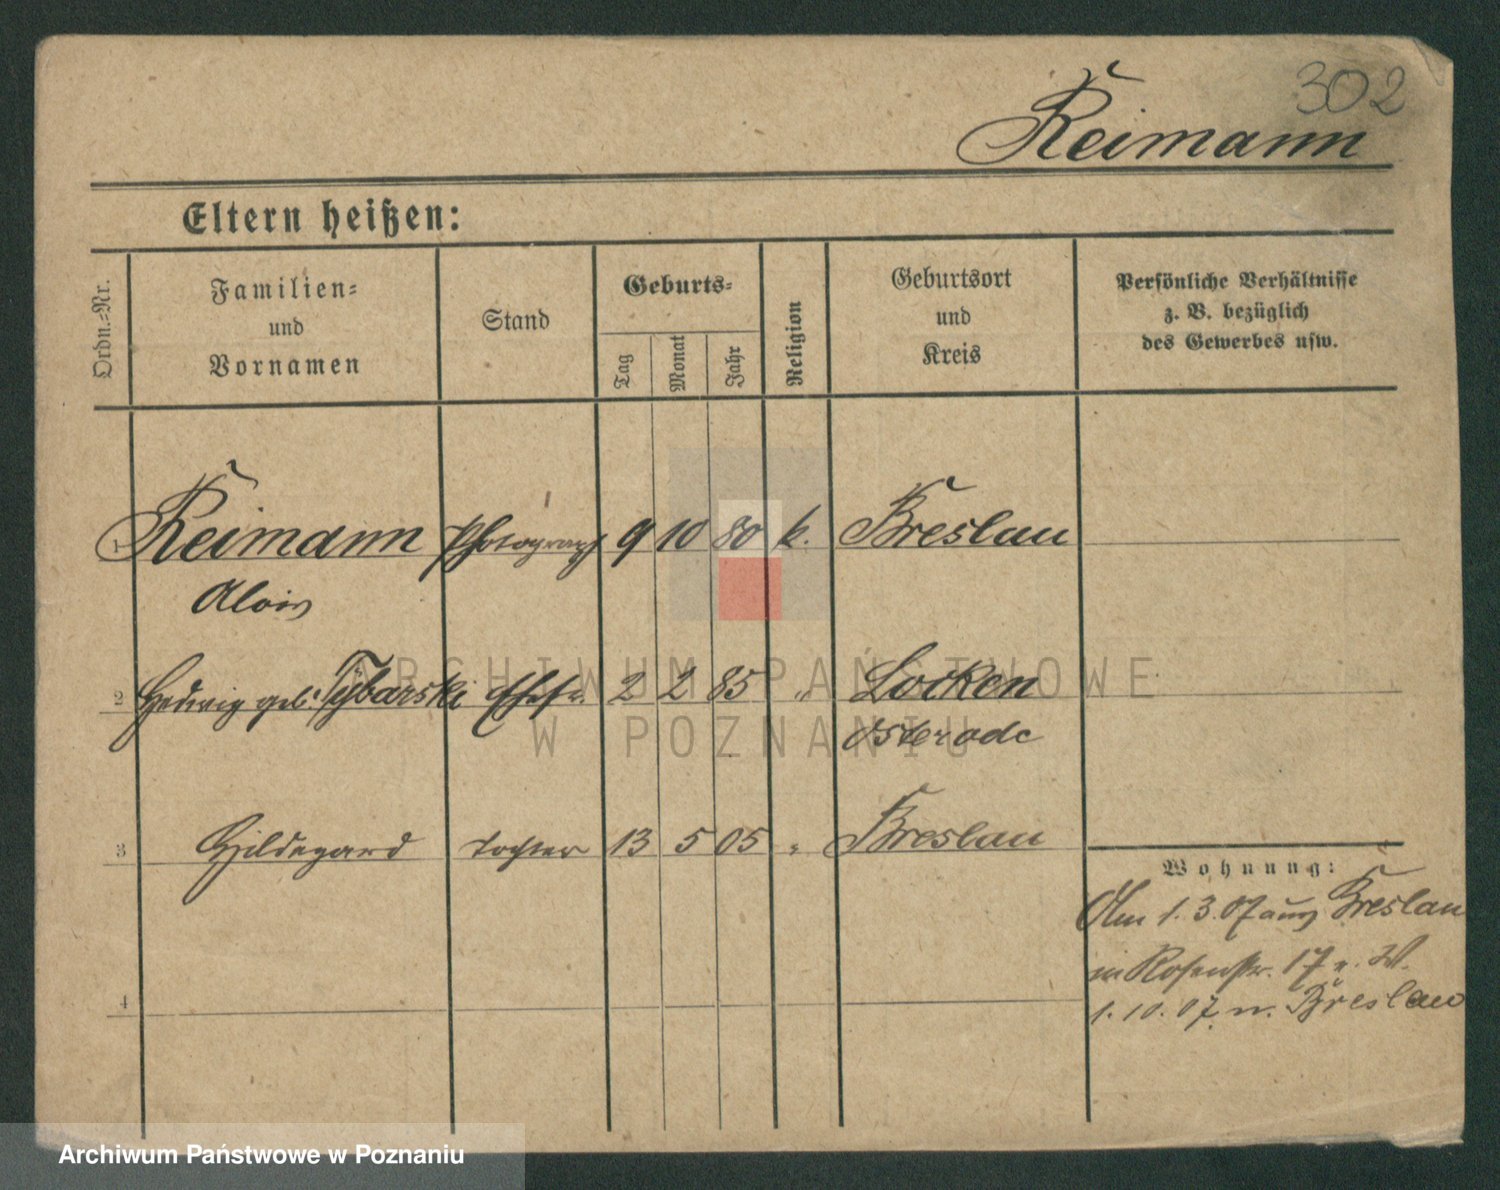 302
Reimann
Eltern heißen:
Ordn.=Nr.
Familien=
und
Vornamen
Stand
Geburts=
Tag
Monat
Jahr
Religion
Geburtsort
und
Kreis
Persönliche Verhältnisse
z. B. bezüglich
des Gewerbes usw.
1 Reimann Photograph 9 10 80 k. Breslau
Alois
2 Hedwig geb. Tybarski Ehefr. 2 2 85 " Locken
Osterode
3 Hildegard Tochter 13 5 05 " Breslau
Wohnung:
Am 1. 3. 07 aus Breslau
in Rosenstr. 17 W.
1. 10. 07. n. Breslau
4
ARCHIWUM PAŃSTWOWE
W POZNANIU
Archiwum Państwowe w Poznaniu